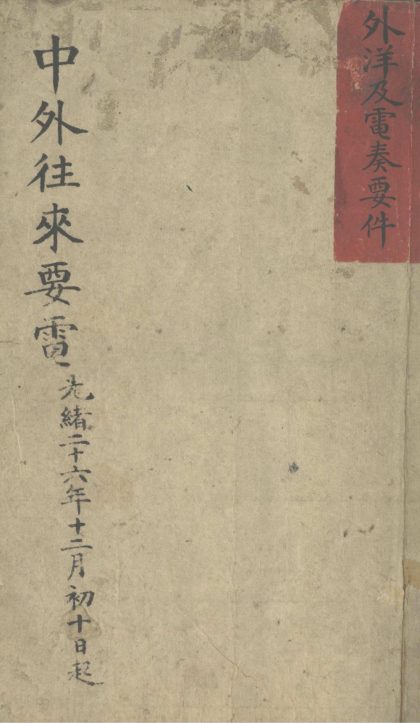 外洋及電奏要件
中外往來要電
光緒二十六年十二月初十日起